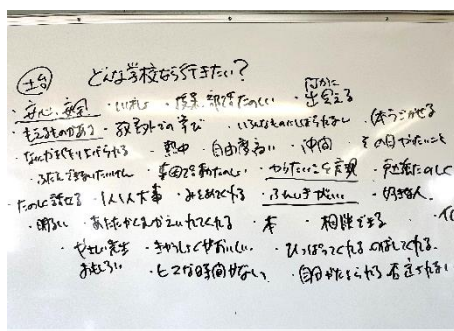 土台 どんな学校なら行きたい？
・安心、安全 ・いれい ・授業、部活たのしい なにかに出会える
・もえるものがある ・教室外での学び ・いろんなものにしばられない 体うごかせる
・なにかをもり上げられる ・熱中 ・自由度高い ・仲間 その日やりたいこと
・ふだんできないたいけん ・集団で活動したい ・やりたいことを実現 ・勉強たのしく
たのしく話せる ・1人1人大事 ・みとめてくれる ・ふんいきがいい ・好きな人
・明るい ・あたたかくむかえいれてくれる ・本 ・相談できる
・やさしい先生 ・きゅうしょくがおいしい ・ひっぱってくれる のばしてくれる
おもしろい ・ヒマな時間がない 否定されない